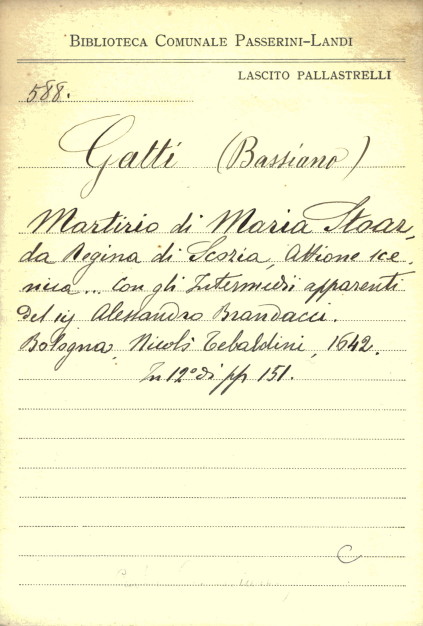 BIBLIOTECA COMUNALE PASSERINI-LANDI
LASCITO PALLASTRELLI
588.
Gatti (Bassiano)
Martirio di Maria Stoar,
da Regina di Scozia, Attione sce-
nica... Con gli Intermedii apparenti
del Alessandro Brandacci.
Bologna, Nicolò Tebaldini, 1642.
In 12° di pp 151.
C